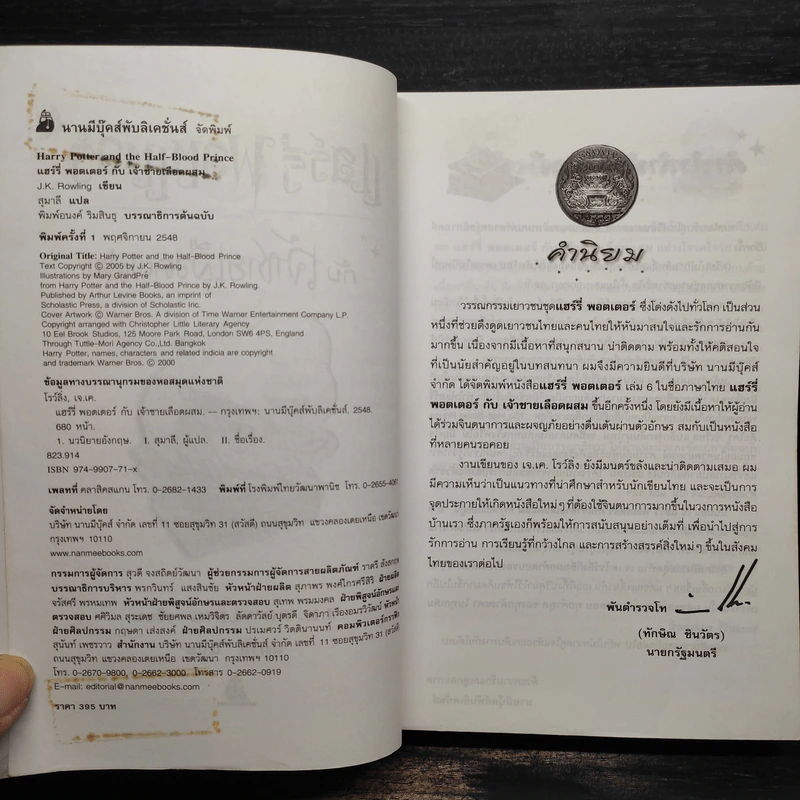 นานมีบุ๊คส์พับลิเคชั่นส์ จัดพิมพ์
Harry Potter and the Half-Blood Prince
แฮร์รี่ พอตเตอร์ กับ เจ้าชายเลือดผสม
J.K. Rowling เขียน
สุมาลี แปล
พิมพ์อนงค์ ริมสินธุ บรรณาธิการต้นฉบับ
พิมพ์ครั้งที่ 1 พฤศจิกายน 2548
Original Title: Harry Potter and the Half-Blood Prince
Text Copyright © 2005 by J.K. Rowling
Illustrations by Mary GrandPré
from Harry Potter and the Half-Blood Prince by J.K. Rowling.
Published by Arthur Levine Books, an imprint of
Scholastic Press, a division of Scholastic Inc.
Cover Artwork © Warner Bros. A division of Time Warner Entertainment Company L.P.
Copyright arranged with Christopher Little Literary Agency
10 Eel Brook Studios, 125 Moore Park Road, London SW6 4PS, England
Through Tuttle-Mori Agency Co.,Ltd. Bangkok
Harry Potter, names, characters and related indicia are copyright
and trademark Warner Bros. © 2000
ข้อมูลทางบรรณานุกรมของหอสมุดแห่งชาติ
โรว์ลิ่ง, เจ.เค.
แฮร์รี่ พอตเตอร์ กับ เจ้าชายเลือดผสม. — กรุงเทพฯ: นานมีบุ๊คส์พับลิเคชั่นส์, 2548.
680 หน้า.
1. นวนิยายอังกฤษ. I. สุมาลี, ผู้แปล. II. ชื่อเรื่อง.
823.914
ISBN 974-9907-71-x
เพลทที่ คลาสิคสแกน โทร. 0-2682-1433 พิมพ์ที่ โรงพิมพ์ไทยวัฒนาพานิช โทร. 0-2655-4061
จัดจำหน่ายโดย
บริษัท นานมีบุ๊คส์ จำกัด เลขที่ 11 ซอยสุขุมวิท 31 (สวัสดี) ถนนสุขุมวิท แขวงคลองเตยเหนือ เขตวัฒนา
กรุงเทพฯ 10110
www.nanmeebooks.com
กรรมการผู้จัดการ สุวดี จงสถิตย์วัฒนา ผู้ช่วยกรรมการผู้จัดการสายผลิตภัณฑ์ ราตรี
บรรณาธิการบริหาร พรกวินทร์ แสงสินชัย หัวหน้าฝ่ายผลิต สุภาพร พงศ์ไกรศรีสิริ ฝ่ายผลิต
จรัสศรี พรหมเทพ หัวหน้าฝ่ายพิสูจน์อักษรและตรวจสอบ สุเทพ พรมวงค์ ฝ่ายพิสูจน์อักษรและ
ตรวจสอบ ศศิวิมล สุระเดช ชัยยศพล เหมวิจิตร ลัดดาวัลย์ บุตรดี จิดาภา เรืองอมรวิวัฒน์ หัวหน้า
ฝ่ายศิลปกรรม กฤษดา เส่งสงค์ ฝ่ายศิลปกรรม ปรเมศวร์ วิตตินานนท์ คอมพิวเตอร์กราฟิก
สุนันท์ เพชรวาว สำนักงาน บริษัท นานมีบุ๊คส์พับลิเคชั่นส์ จำกัด เลขที่ 11 ซอยสุขุมวิท 31 (สวัสดี)
ถนนสุขุมวิท แขวงคลองเตยเหนือ เขตวัฒนา กรุงเทพฯ 10110
โทร. 0-2670-9800, 0-2662-3000 โทรสาร 0-2662-0919
E-mail: editorial@nanmeebooks.com
ราคา 395 บาท
คำนิยม
วรรณกรรมเยาวชนชุดแฮร์รี่ พอตเตอร์ ซึ่งโด่งดังไปทั่วโลก เป็นส่วน
หนึ่งที่ช่วยดึงดูดเยาวชนไทยและคนไทยให้หันมาสนใจและรักการอ่านกัน
มากขึ้น เนื่องจากมีเนื้อหาที่สนุกสนาน น่าติดตาม พร้อมทั้งให้คติสอนใจ
ที่เป็นนัยสำคัญอยู่ในบทสนทนา ผมจึงมีความยินดีที่บริษัท นานมีบุ๊คส์
จำกัด ได้จัดพิมพ์หนังสือแฮร์รี่ พอตเตอร์ เล่ม 6 ในชื่อภาษาไทย แฮร์รี่
พอตเตอร์ กับ เจ้าชายเลือดผสม ขึ้นอีกครั้งหนึ่ง โดยยังมีเนื้อหาให้ผู้อ่าน
ได้ร่วมจินตนาการและผจญภัยอย่างตื่นเต้นผ่านตัวอักษร สมกับเป็นหนังสือ
ที่หลายคนรอคอย
งานเขียนของ เจ.เค. โรว์ลิ่ง ยังมีมนตร์ขลังและน่าติดตามเสมอ ผม
มีความเห็นว่าเป็นแนวทางที่น่าศึกษาสำหรับนักเขียนไทย และจะเป็นการ
จุดประกายให้เกิดหนังสือใหม่ๆ ที่ต้องใช้จินตนาการมากขึ้นในวงการหนังสือ
บ้านเรา ซึ่งภาครัฐเองก็พร้อมให้การสนับสนุนอย่างเต็มที่ เพื่อนำไปสู่การ
รักการอ่าน การเรียนรู้ที่กว้างไกล และการสร้างสรรค์สิ่งใหม่ๆ ขึ้นในสังคม
ไทยของเราต่อไป
พันตำรวจโท
(ทักษิณ ชินวัตร)
นายกรัฐมนตรี